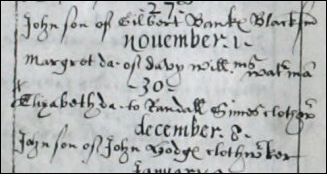 27
John son of Gilbert Banke Blacksm
november. 1.
Margret da. of davy will.ms wat.r ma
30.
Elizabeth da. to Randall Simes clothw.r
december. 8.
John son of John Hodge clothw.rker
January